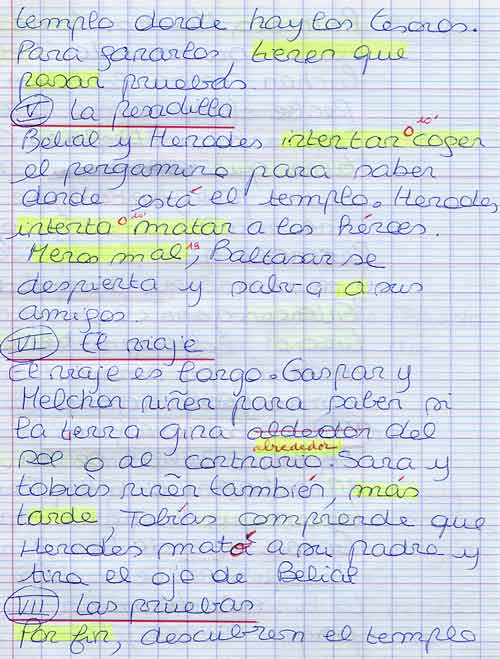 templo donde hay los tesoros.
Para ganarlos, tienen que
pasar pruebas
V La pesadilla
Belial y Herodes intentan coger
el pergamino para saber
donde está el templo. Herodes
intenta matar a los héroes.
Menos mal, Baltasar se
despierta y salva a sus
amigos.
VI El viaje
El viaje es largo. Gaspar y
Melchor riñen para saber si
la tierra gira alrededor del
sol o al contrario. Sara y
tobías riñen también, más
tarde, Tobías comprende que
Herodes mató a su padre y
tira el ojo de Belial
VII Las pruebas
Por fin, descubren el templo